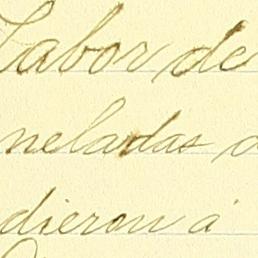 Labor de
neladas
dieron á